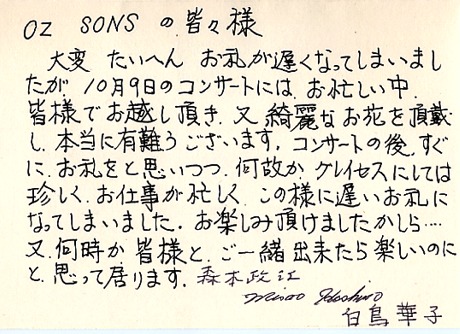 OZ SONS の皆々様
大変 たいへん お礼が遅くなってしまいまし
たが 10月9日のコンサートには、お忙しい中、
皆様でお越し頂き、又 綺麗なお花を頂戴
し、本当に有難うございます。コンサートの後、すぐ
に、お礼をと思いつつ、何故か、グレイセスにしては
珍しく、お仕事が忙しく、この様に遅いお礼に
なってしまいました。お楽しみ頂けましたかしら‥‥
又、何時か 皆様と、ご一緒出来たら楽しいのに
と、思って居ります。森本政江
白鳥華子